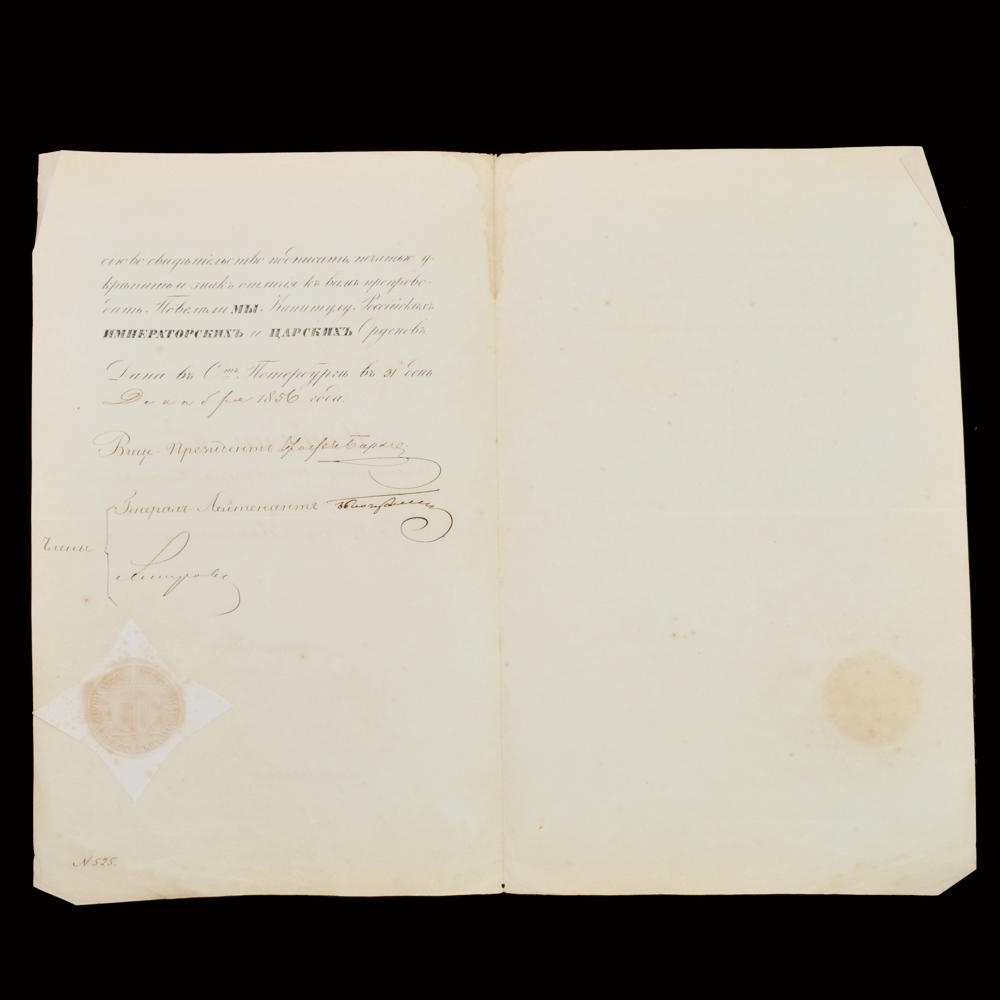 сію во свидѣтельство подписать, печатью у-
крѣпить и знакъ отличія къ вамъ препрово-
дить. Повелѣли МЫ Капитулу Россійскихъ
ИМПЕРАТОРСКИХЪ и ЦАРСКИХЪ Орденовъ.
Дана въ С.тъ Петербургѣ въ 31 день
Декабря 1856 года.
Вице-Президентъ Графъ
Генералъ-Лейтенантъ
Члены
N 525.